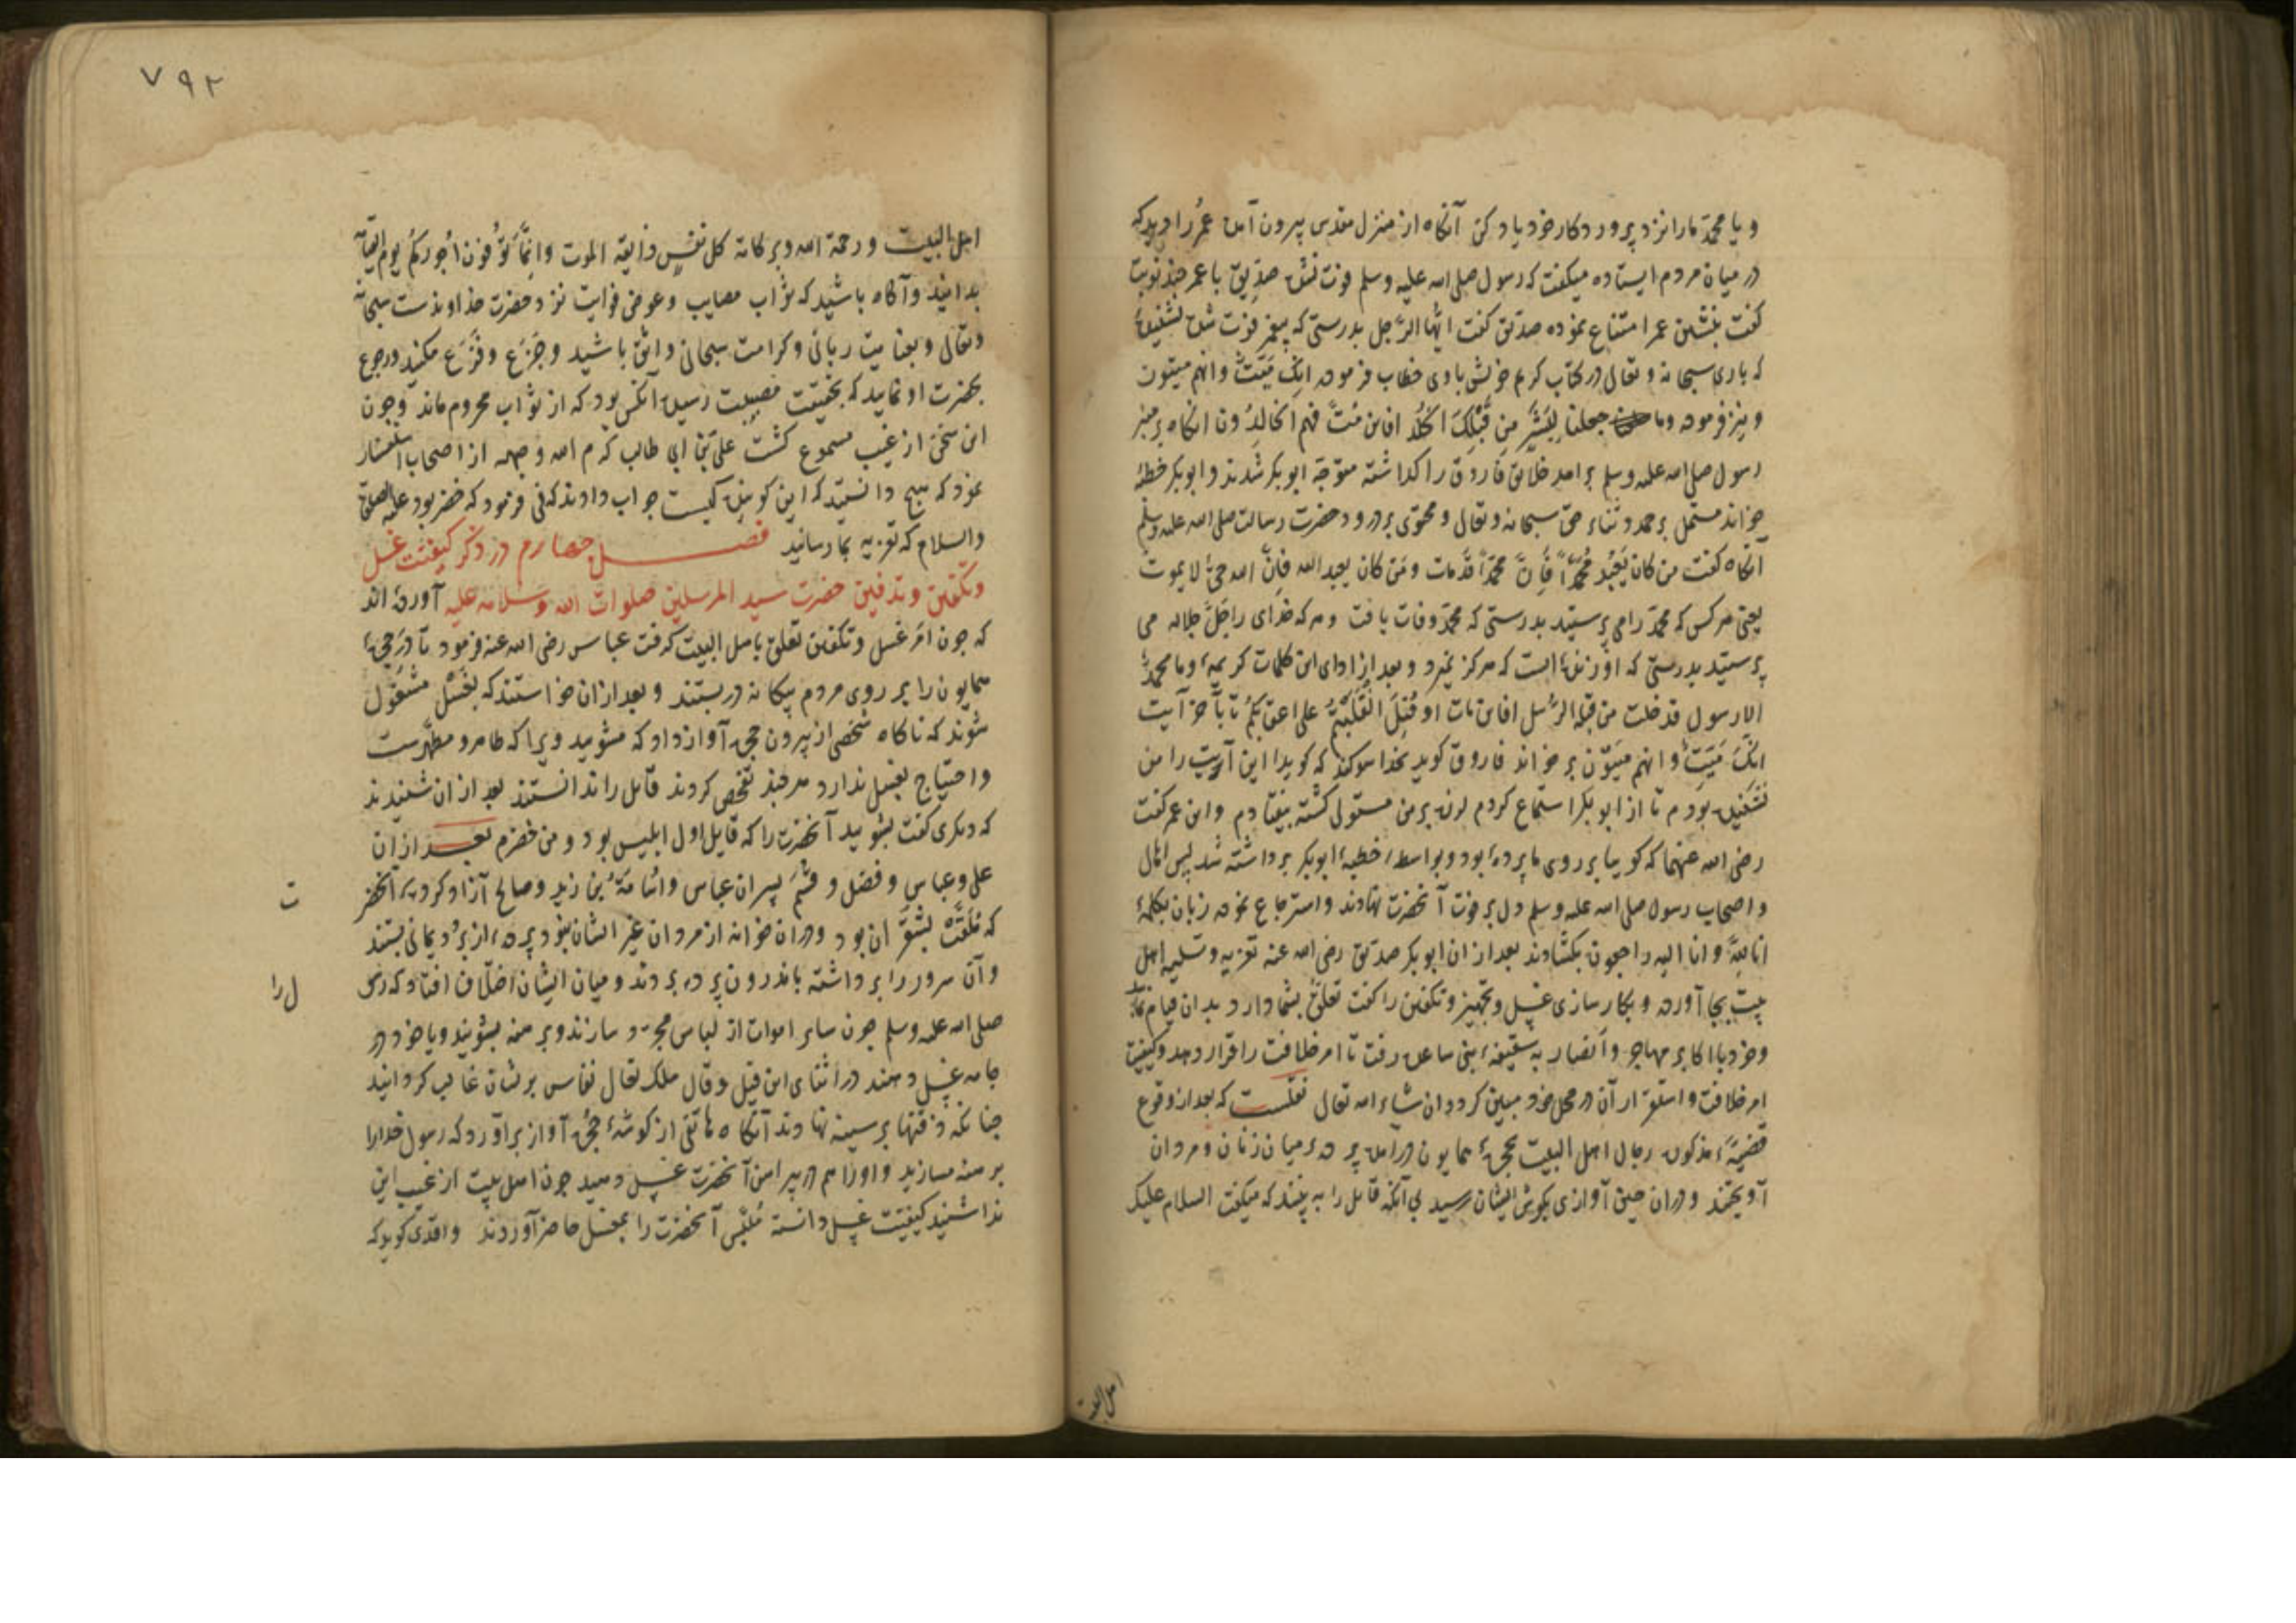 و یا محمد ما را نزد پروردکار خود یاد کن آنکاه از منزل مقدس بیرون آمده عمر را دید که
در میان مردم ایستاده میکفت که رسول صلی الله علیه وسلم فوت نشده صدیق با عمر چند نوبت
کفت بنشین عمر امتناع نموده صدیق کفت ایها الرجل بدرستی که پیغمبر فوت شده نشنیدهٔ
که باری سبحانه و تعالی در کتاب کریم خویش با وی خطاب فرموده انک میت وانهم میتون
و نیز فرموده وما جعلنا لبشر من قبلک الخلد افاین مت فهم الخالدون انکاه بر منبر
رسول صلی الله علیه وسلم برامد خلایق فاروق را کذاشته متوجه ابوبکر شدند و ابوبکر خطبهٔ
خواند مشتمل بر حمد و ثناء حق سبحانه و تعالی و محتوی بر درود حضرت رسالت صلی الله علیه وسلم
آنکاه کفت من کان یعبد محمدًا فَاِنَّ محمدًا قد مات ومن کان یعبد الله فاِنَّ الله حیٌّ لا یموت
یعنی هر کس که محمد را می پرستید بدرستی که محمد وفات یافت و هر که خدای را جل جلاله می
پرستید بدرستی که او زنده است که هرکز نمیرد و بعد از ادای این کلمات کریمه وما محمد
الا رسول قد خلت من قبله الرسل افاین مات او قتل انقلبتم علی اعقابکم تا باخر آیت
انک میت وانهم میتون بر خواند فاروق کوید بخدا سوکند که کویا این آیت را من
نشنیده بودم تا از ابوبکر استماع کردم لرزه بر من مستولی کشته بیفتادم وابن عمر کفت
رضی الله عنهما که کویا بر روی ما پردهٔ بود و بواسطهٔ خطبهٔ ابوبکر برداشته شد پس اهالی
و اصحاب رسول صلی الله علیه وسلم دل بر فوت آنحضرت نهادند و استرجاع نموده زبان بکلمهٔ
انا لله وانا الیه راجعون بکشادند بعد از ان ابوبکر صدیق رضی الله عنه تعزیه و تسلیه اهل
بیت بجا آورده و بکارسازی غسل و تجهیز و تکفین را کفت تعلق بشما دارد بدان قیام نمایید
وخود با اکابر مهاجر و انصار به سقیفهٔ بنی ساعده رفت تا امر خلافت را قرار دهد و کیفیت
امر خلافت و استقرار آن در محل خود مبین کردد ان شاء الله تعالی نقلست که بعد از وقوع
قضیهٔ مذکوره رجال اهل البیت بحجرهٔ همایون درآمده پردهٔ میان زنان و مردان
آویختند و دران حین آوازی بکوش ایشان رسید بی آنکه قایل را به بینند که میکفت السلام علیک
اهل البیت
٧٩٢
اهل البیت ورحمة الله وبرکاته کل نفس ذایقة الموت وانما توفون اجورکم یوم القیامة
بدانید و آکاه باشید که ثواب مصایب و عوض فوایت نزد حضرت خداوندست سبحانه
وتعالی و بعنایت ربانی و کرامت سبحانی واثق باشید و جزع و فزع مکنید و رجوع
بحضرت او نمایید که بحقیقت مصیبت رسیده آنکس بود که از ثواب محروم ماند و چون
این سخن از غیب مسموع کشت علی بن ابی طالب کرم الله وجهه از اصحاب استفسار
نمود که هیچ دانستید که این کوینده کیست جواب دادند که نی فرمود که خضر بود علیه الصلوة
والسلام که تعزیه بما رسانید فصل چهارم در ذکر کیفیت غسل
وتکفین و تدفین حضرت سید المرسلین صلوات الله وسلامه علیه آورده اند
که چون امر غسل و تکفین تعلق باهل البیت کرفت عباس رضی الله عنه فرمود تا در حجرهٔ
همایون را بر روی مردم بیکانه دربستند و بعد از ان خواستند که بغسل مشغول
شوند که ناکاه شخصی از بیرون حجره آواز داد که مشویید ویرا که طاهر و مطهرست
و احتیاج بغسل ندارد هر چند تفحص کردند قایل را ندانستند بعد از ان شنیدند
که دیکری کفت بشویید آنحضرت را که قایل اول ابلیس بود و من خضرم بعد از ان
علی وعباس و فضل و قثم پسران عباس و اسامة بن زید وصالح آزاد کرده آنحضرت
ت
که ملقب بشقران بود و دران خوانه از مردان غیر ایشان نبود پردهٔ از برد یمانی بستند
و آن سرور را برداشته باندرون پرده بردند و میان ایشان اختلاف افتاد که رسول را
صلی الله علیه وسلم چون سایر اموات از لباس مجرد سازند و برهنه بشویند و یا خود در
جامه غسل دهند در اثنای این قیل و قال ملک تعالی نعاس بر لشان غالب کردانید
چنانکه ذقنها بر سینه نهادند آنکاه هاتفی از کوشهٔ حجره آواز برآورد که رسول خدا را
برهنه مسازید و او را هم در پیراهن آنحضرت غسل دهید چون اهل بیت از غیب این
ندا شنیدند کیفیت غسل دانسته آنحضرت را بمغسل حاضر آوردند واقدی کوید که